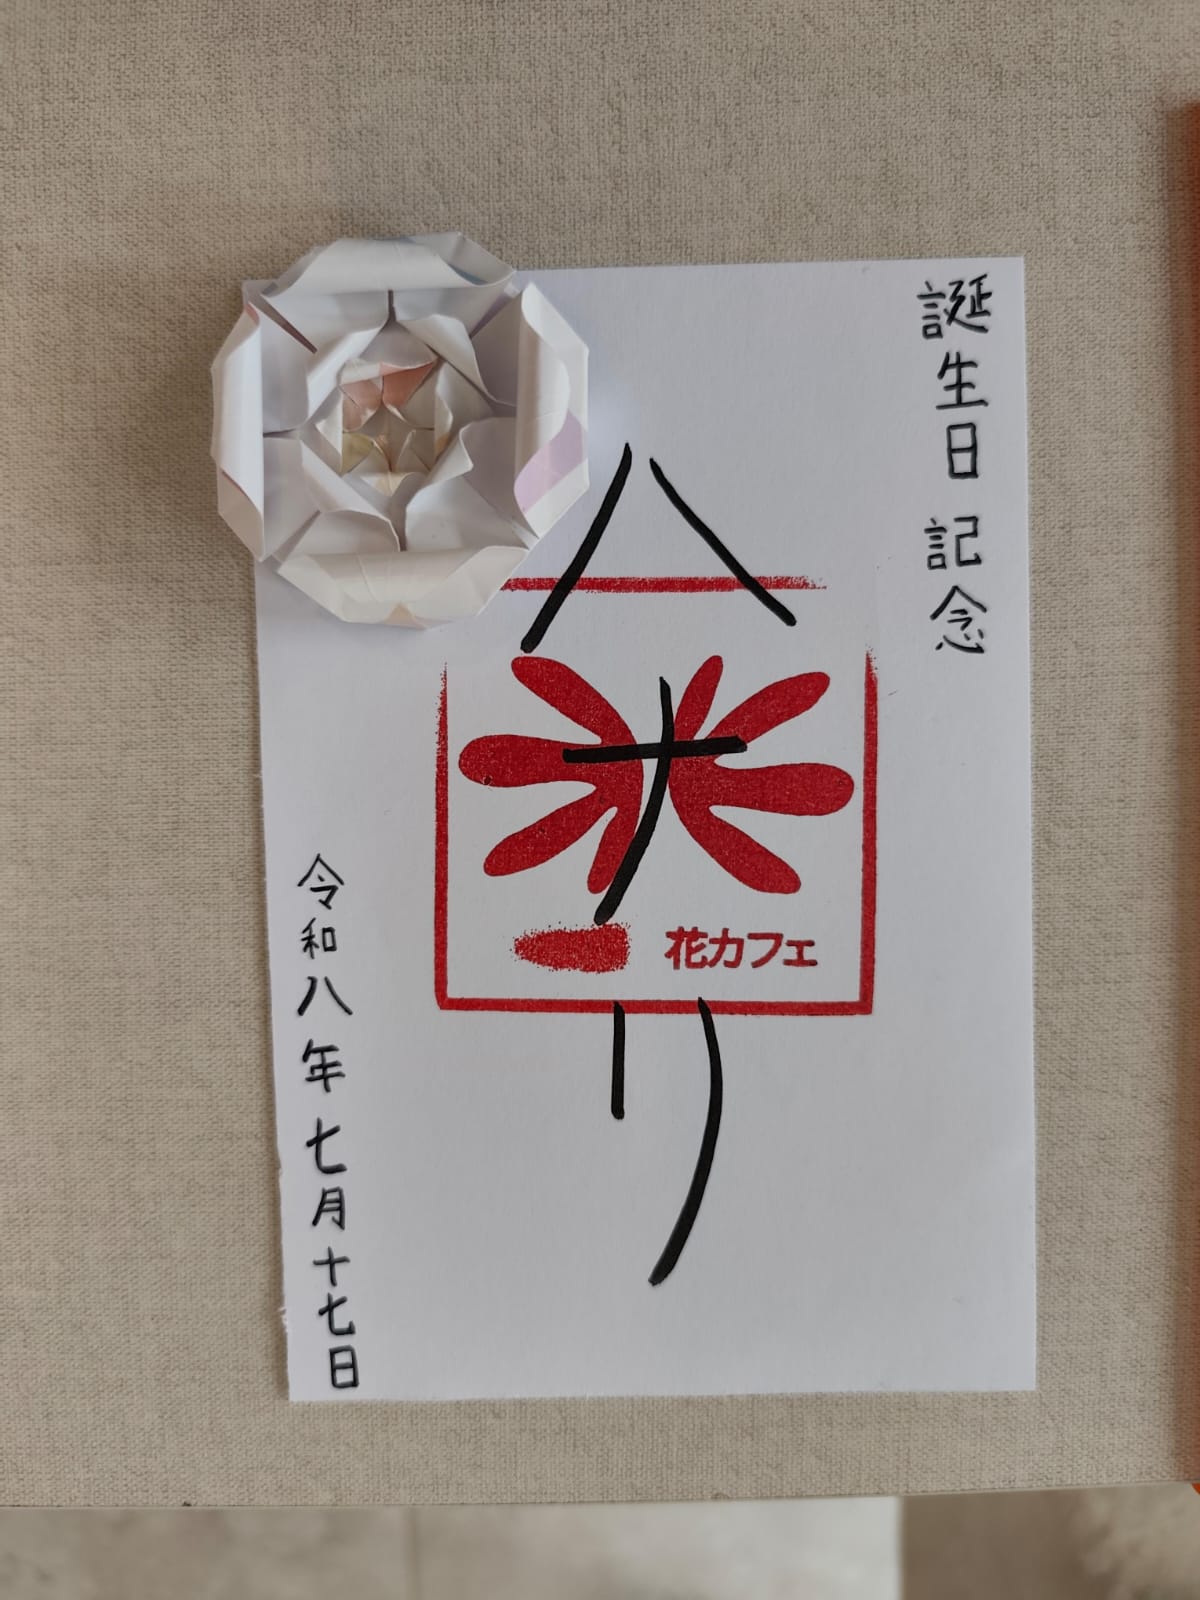 誕生日記念
ハナリ
花カフェ
令和八年七月十七日